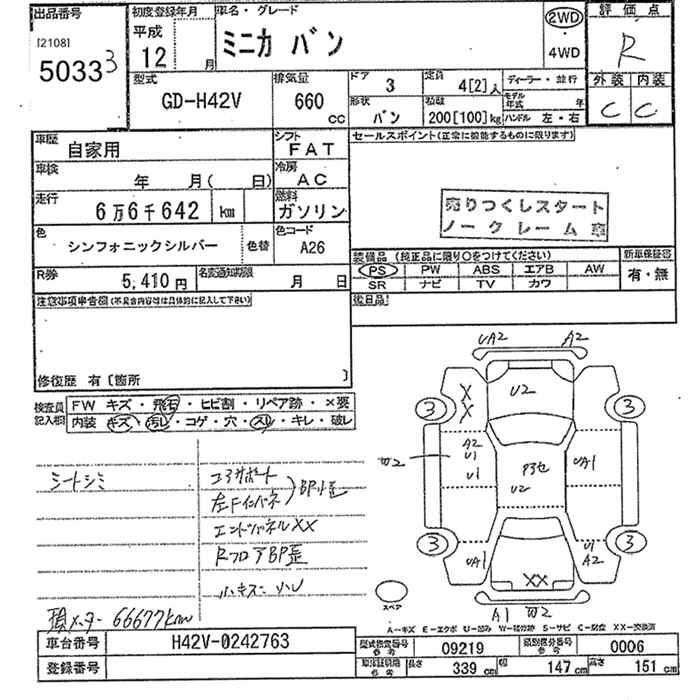 出品番号
[2108]
50333
初度登録年月
平成
12 月
車名・グレード
ミニカ バン
2WD
・
4WD
評価点
R
型式
GD-H42V
排気量
660
CC
ドア
3
定員
4[2]人
形状
バン
積載
200[100]kg
ディーラー・並行
モデル年式 年
ハンドル 左・右
外装 内装
C C
車歴
自家用
シフト
FAT
車検
年 月( 日)
冷房
AC
走行
6万6千642 km
燃料
ガソリン
色
シンフォニックシルバー
色替
色コード
A26
R券
5,410円
名変通知期限
月 日
セールスポイント(正常に機能するものに限ります)
売りつくしスタート
ノークレーム
装備品 (純正品に限り○をつけてください)
PS PW ABS エアB AW
SR ナビ TV カワ
新車保証書
有・無
後日品
注意事項申告欄(不具合内容等は具体的に記入して下さい)
修復歴 有〔箇所 〕
検査員記入欄
FW キズ・飛石・ヒビ割・リペア跡・×要
内装 キズ・汚レ・コゲ・穴・スレ・キレ・破レ
シートシミ
コアサポート
左Fインパネ
BP小歪
エンドパネルXX
RフロアBP歪
小キズ
メーター 66677km
UA2 A2
X
X
U2
3 3
A2
U1
U1
U2
UA1
3 3
UA1
U1
A2
XX
A1
スペア
A-キズ E-エクボ U-凹み W-補修跡 S-サビ C-腐食 XX-交換済
車台番号
H42V-0242763
登録番号
型式指定番号
参考
09219
類別区分番号
参考
0006
車体証明用
参考
長さ
339 cm
幅
147 cm
高さ
151 cm